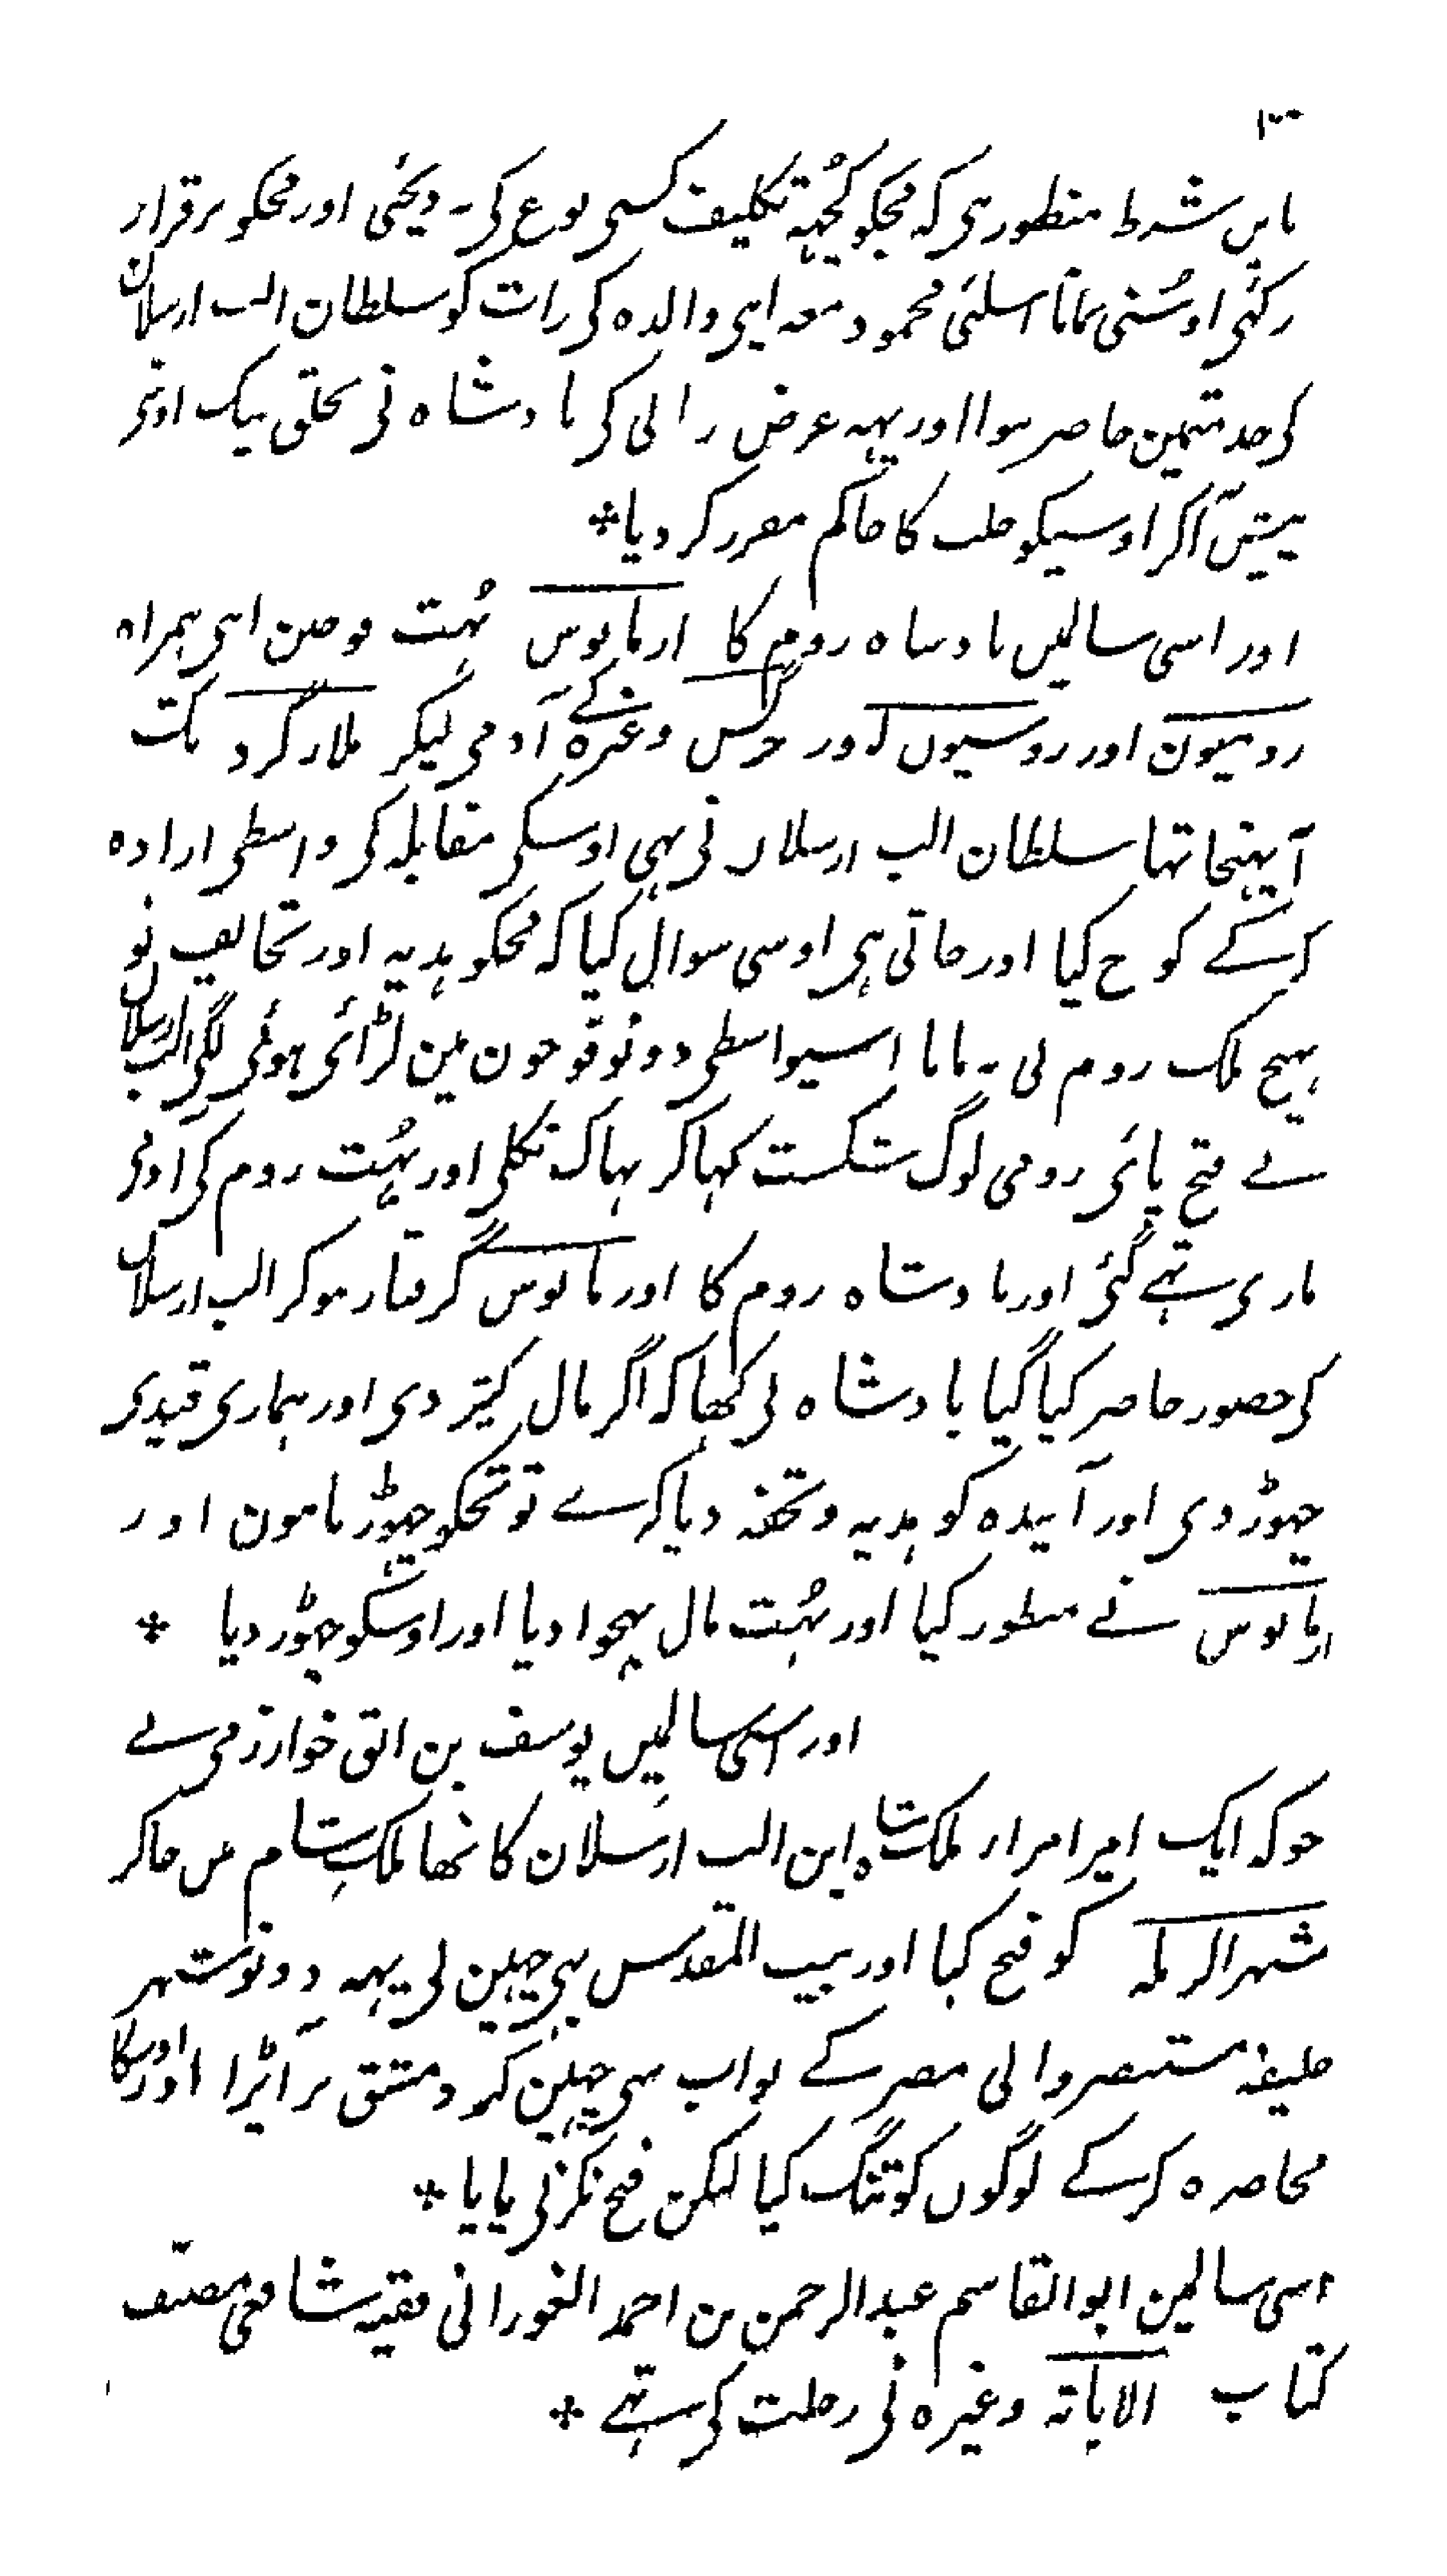 ۳۰۰
باین شرط منظور ہی کہ مجکو کُچہہ تکلیف کسی نوع کی نہ دیجئی اور مجکو برقرار
رکہئی اوسُنی نمانا اسلئی محمود معہ اپنی والدہ کی رات کو سلطان الب ارسلان
کی خدمتمین حاضر ہوا اور یہہ عرض را لی کی بادشاہ نی بخلق نیک اونکی
پیش آکر اوسیکو حلب کا حاکم مقرر کر دیا *
اور اسی سالمیں بادشاہ روم کا ارمانوس بہُت فوجین اپنی ہمراہ
رومیون اور روسیوں اور جرکس وغیرہ کے آدمی لیکر ملازگرد تک
آپہنچا تہا سلطان الب ارسلان نی بہی اوسکی مقابلہ کی واسطی ارادہ
کرکے کوچ کیا اور جاتی ہی اوسی سوال کیا کہ مجکو ہدیہ اور تحایف تو
بہیج ملک روم نی نہ مانا اسیواسطی دونو فوجون مین لڑائی ہونی لگی الب ارسلان
نے فتح پائی رومی لوگ شکست کہا کر بہاگ نکلی اور بہُت روم کی آدمی
ماری تہے گئی اور بادشاہ روم کا اورمانوس گرفتار ہوکر الب ارسلان
کی حضور حاضر کیا گیا بادشاہ نی کہا کہ اگر مال کثیر دی اور ہماری قیدی
چہوڑ دی اور آیندہ کو ہدیہ و تحفہ دیا کرے تو تجکو چہوڑتا ہون اور
ارمانوس نے منظور کیا اور بہُت مال بہجوا دیا اور اوسکو چہوڑ دیا *
اور اسی سالمیں یوسف بن اتق خوارزمی نے
جو کہ ایک امیر امرار ملک شاہ ابن الب ارسلان کا تھا ملکِ شام میں جاکر
شہر الرملہ کو فتح کیا اور بیت المقدس بہی چہین لی یہہ دونو شہر
خلیفہ مستنصر والی مصر کے نواب سی چہین کر دمشق پر آپڑا اور اوسکا
محاصرہ کرکے لوگوں کو تنگ کیا لیکن فتح نکرنی پایا *
اسی سالمین ابو القاسم عبد الرحمن بن احمد الفورانی فقیہ شافعی مصنّف
کتاب الابانہ وغیرہ نی رحلت کی تہے *